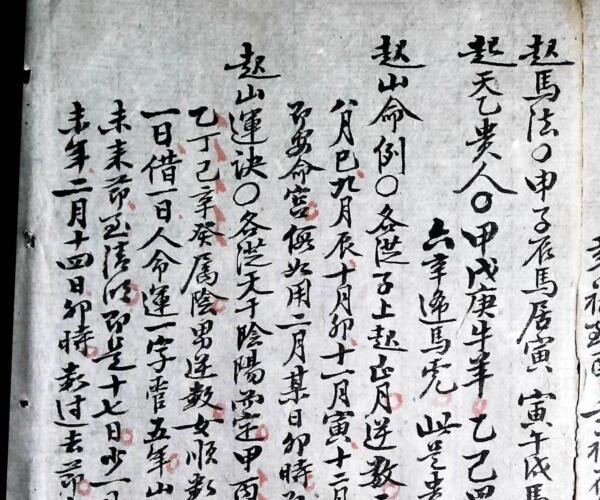 起馬法○申子辰馬居寅 寅午戌馬
起天乙貴人○甲戊庚牛羊 乙己
六辛逢馬虎 此是貴
起山命例○各從子上起正月逆數
八月巳九月辰十月卯十一月寅十二月
即安命宮假如用二月某日卯時
起山運訣○各從天干陰陽而定甲丙
乙丁己辛癸屬陰男逆數女順數
一日借一日人命運一字管五年山
未来節至清明即是十七日少一日
未年二月十四日卯時數過去節